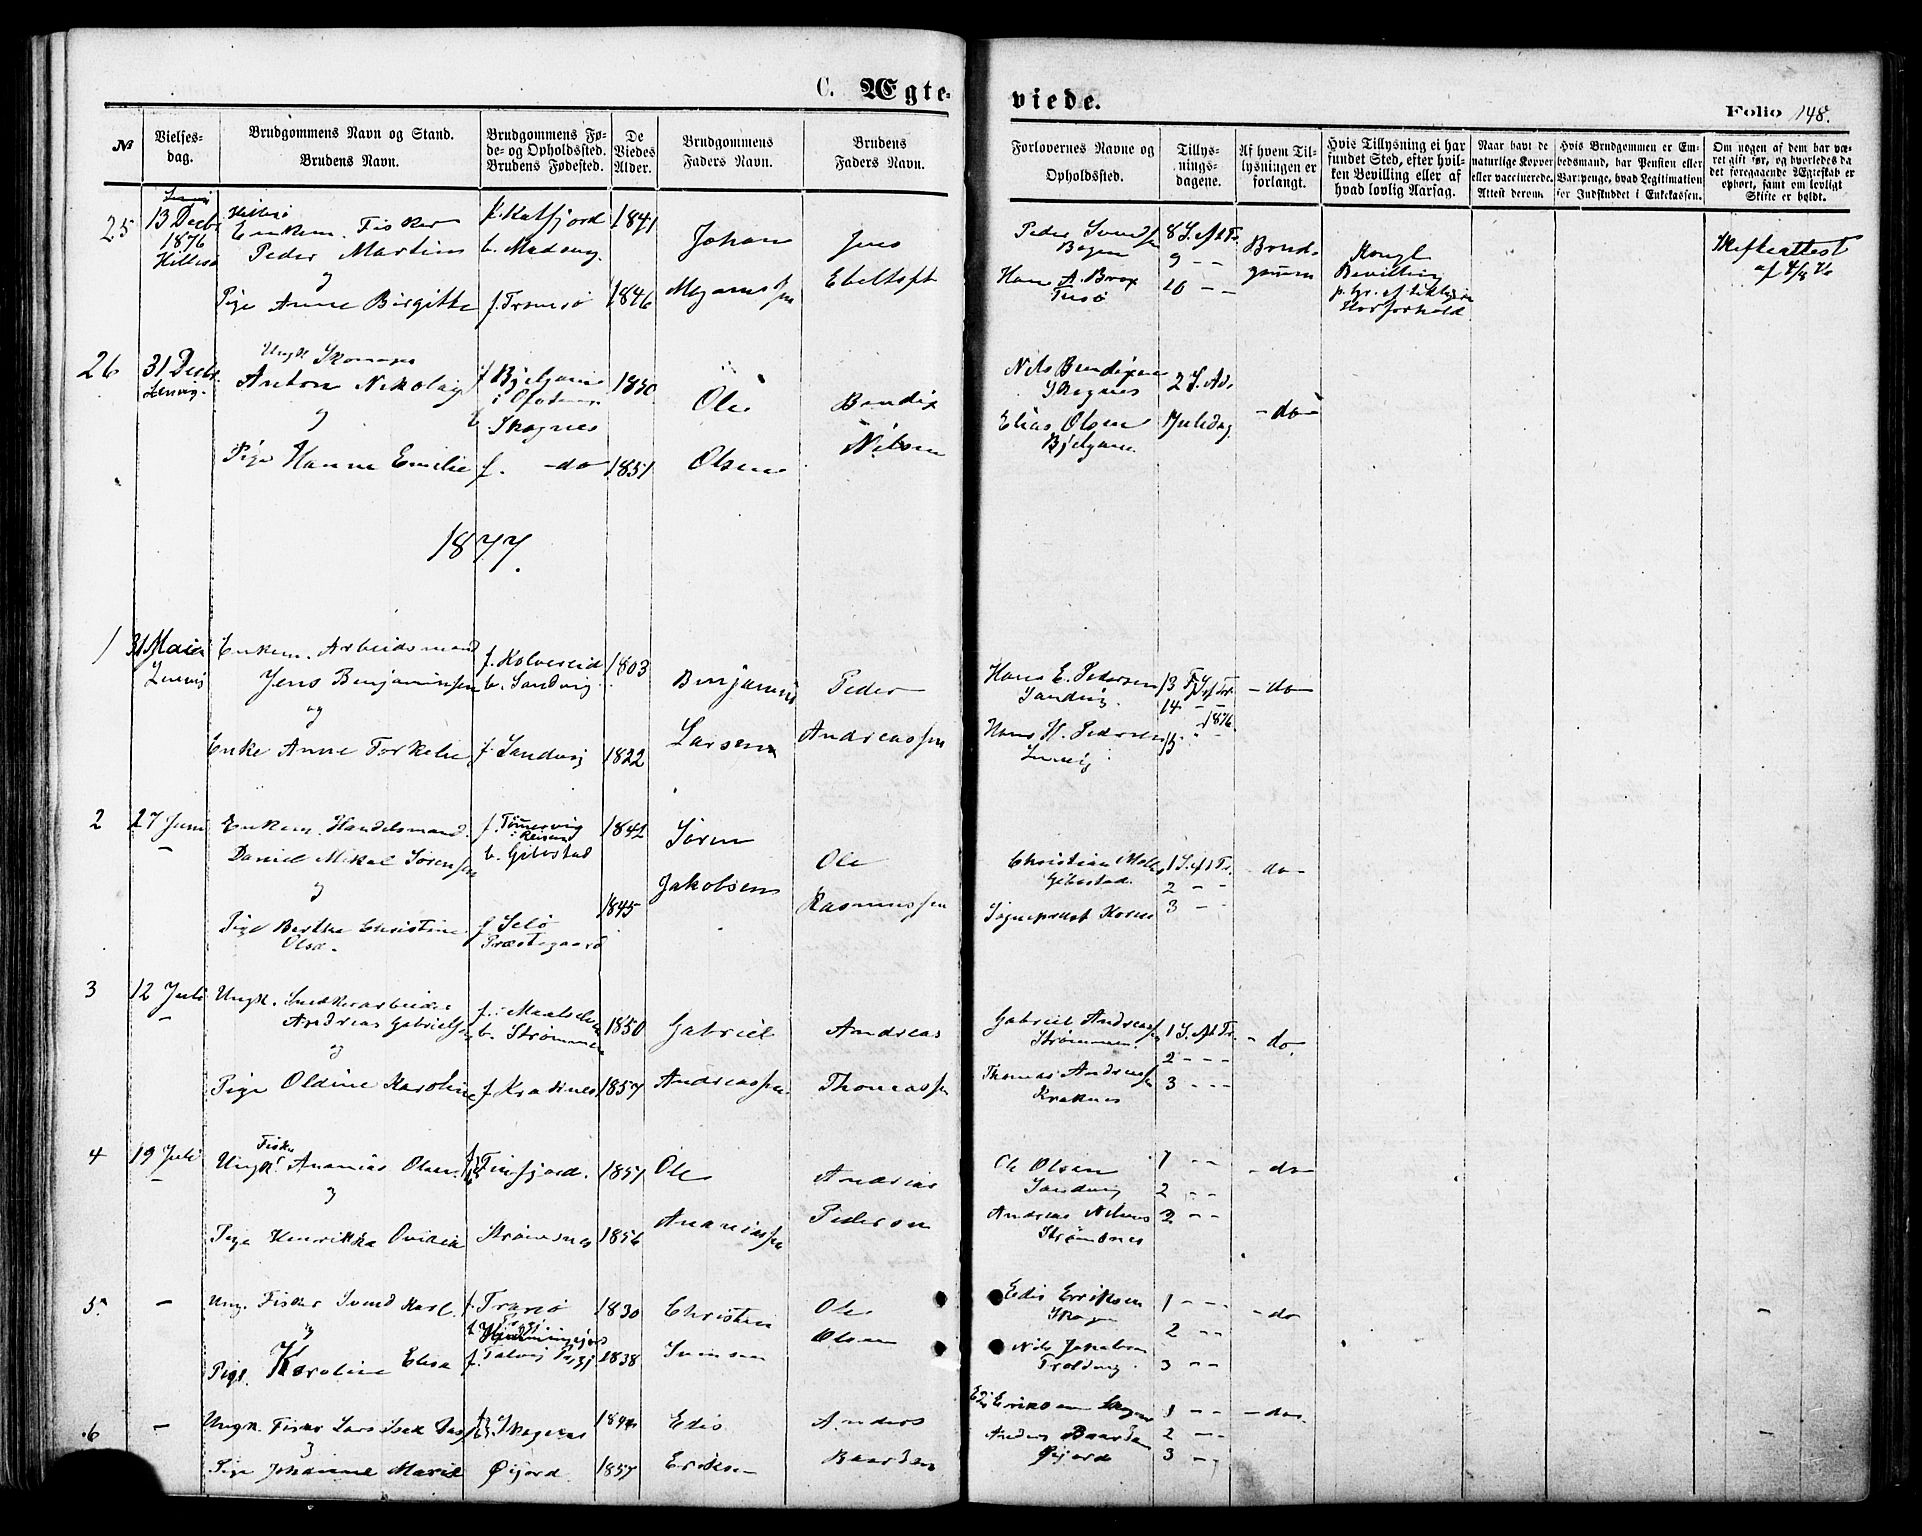 C. Ægte-
viede.
Folio 148.
№
Vielses-
dag.
Brudgommens Navn og Stand.
Brudens Navn.
Brudgommens Fø-
de- og Opholdssted.
Brudens Fødested.
De
Viedes
Alder.
Brudgommens
Faders Navn.
Brudens
Faders Navn.
Forlovernes Navne og
Opholdssted.
Tillys-
nings-
dagene.
Af hvem Til-
lysningen er
forlangt.
Hvis Tillysning ei har
fundet Sted, efter hvil-
ken Bevilling eller af
hvad lovlig Aarsag.
Naar havt de
naturlige Kopper
eller vaccinerede.
Attest derom.
Hvis Brudgommen er Em-
bedsmand, har Pension eller
Vartpenge, hvad Legitimation
for Indskuddet i Enkekassen.
Om nogen af dem har væ-
ret gift før, og hvorledes da
det foregaaende Ægteskab er
ophørt, samt om lovligt
Skifte er holdt.
25
13 Decbr
1876
Hillesø
Hillesø
Enkem. Fisker
Peder Martin
Pige Anne Birgitte
f. Katfjord
b.
f. Tromsø
1841
1846
Johan
Jens
Ebeltoft
Peder
Bogen
Hans A. Brox
Tusø
8 S. eft Tr.
9 - -
10 - -
Brud-
gommen
Kongl
Bevilling
Skifteattest
26
31 Decbr.
Lenvig.
Ungk Skomager
Anton Nikolay
Pige Hanne Emilie
f Bjelgam
i Ofoten
Skognes
f. -do-
1830
1851
Ole
Olsen
Bendix
Nilsen
Nils Bendixen
Skognes
Elias Olsen
2 S. Adv
Juledag
- do -
1877.
1
31 Mai
Lenvig
Enkem. Arbeidsmand
Jens Benjaminsen
og
Enke Anne Torkelie
f. Kolvereid
b. Sandvig
f Sandvig
1803
1822
Benjamin
Larsen
Peder
Andreassen
Hans E. Pedersen
Sandvig.
Hans H. Pedersen
Lenvig
13
14 - -
1876
15 - -
- do -
2
17 Juni
-
Enkem. Handelsmand
Daniel Mikal Sørensen
Pige Bertha Christine
f.
b. Gibostad
Præstegaard
1842
1845
Søren
Jakobsen
Ole
Rasmussen
Christian Moe
Gibostad.
Sogneprest
1 S. eft Tr.
2 - -
3 - -
- do -
3
12 Juli
-
Ungk. Snedkerarbeider
Andreas Gabrielsen
og
Pige Oldine Karoline
f. Maalselven
b. Strømmen
f Kraknes
1850
1857
Gabriel
Andreassen
Andreas
Thomassen
Gabriel Andreassen
Strømmen.
Thomas Andreassen
Kraknes
1 S. eft Tr.
2 - - -
3 - - -
- do.
4
19 Juli
-
Fisker
Ungk. Ananias Olsen
Pige Henrikka
Finfjord.
Strømsnes
1851
1856
Ole
Ananiassen
Andreas
Pedersen
Ole Olsen
Sandvig
Andreas Nilsen
Strømsnes
1 - -
2 - -
3 - -
- do -
5.
-
Ung. Fisker Svend Karl.
Pige. Karoline Elisa
f. Tranø
f. Talvig
1830
1838
Christen
Svensen
Ole
Olsen
Edis Eriksen
Skogen
Nils Jakobsen
Troldvig.
1 - - -
2 - -
3 - -
- do
-
6
-
Ungk. Fisker Lars Isak
Pige Johanne Marie
Skognes
Øijord
1857
Edis
Eriksen
Anders
Baardsen
Edis Eriksen
Anders Baardsen
Øijord
1 - -
2 - -
3 - -
- do.
-